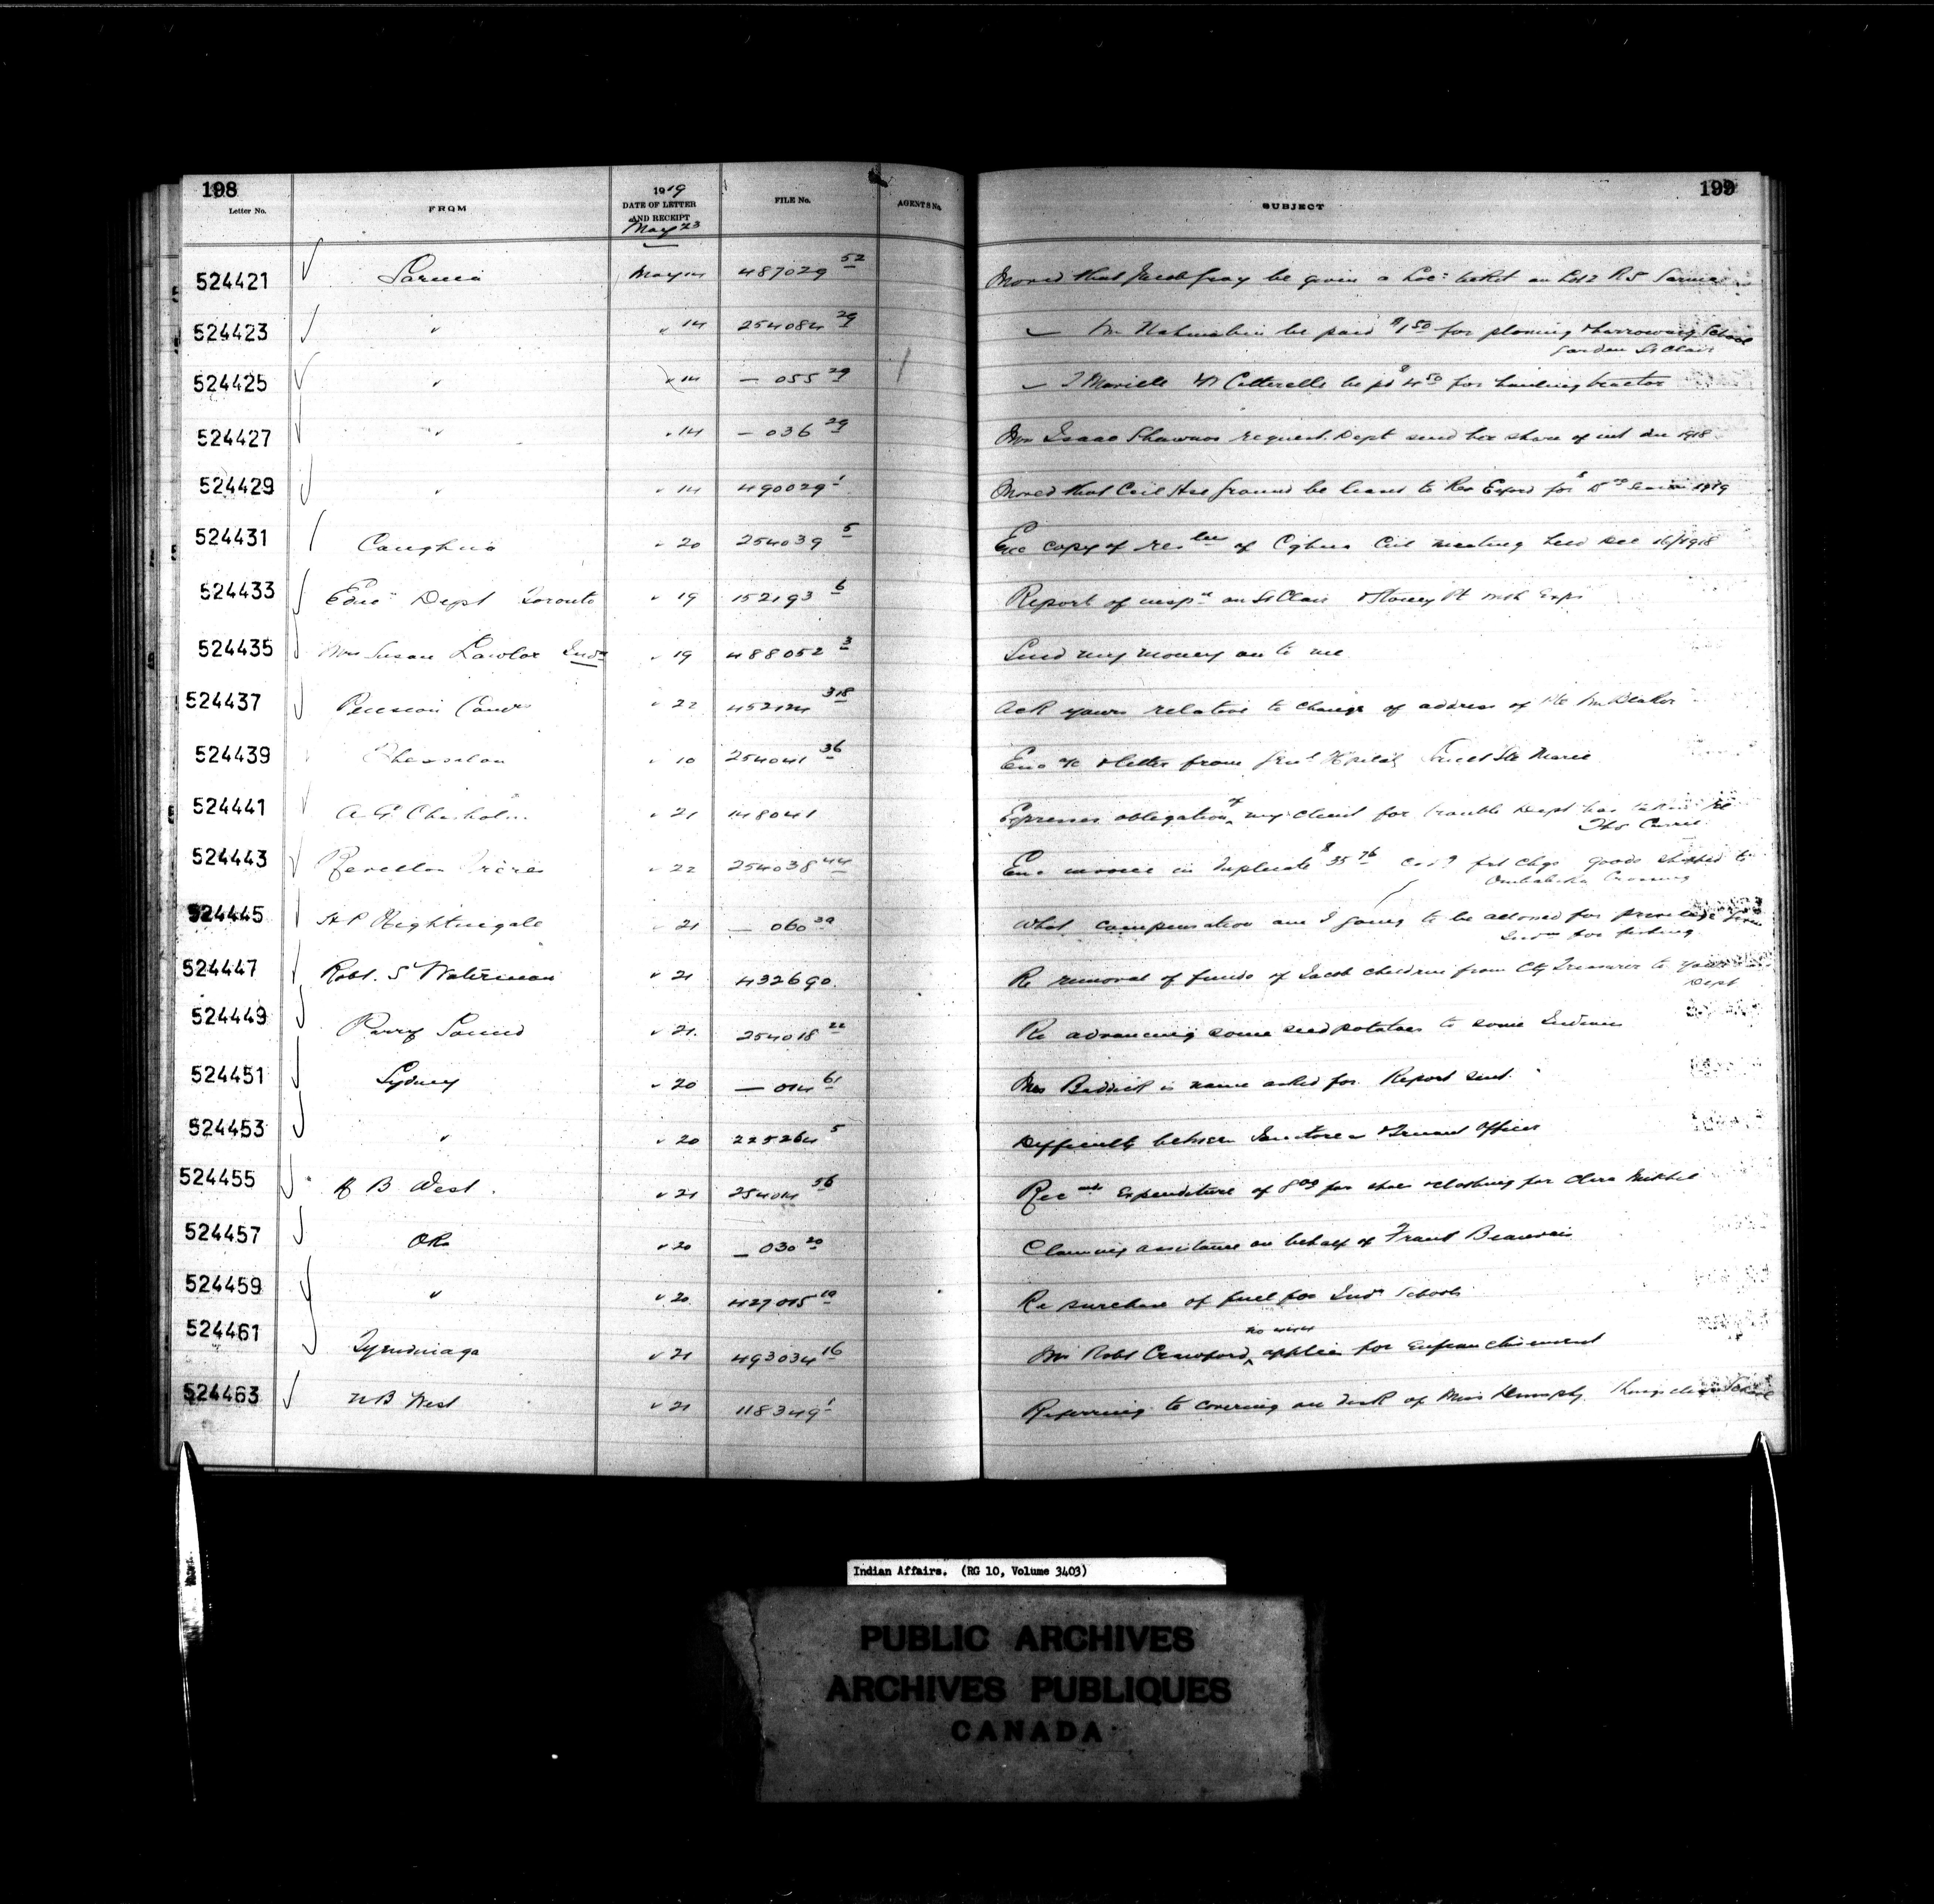 198
199
Letter No.
FROM
1919
DATE OF LETTER
AND RECEIPT
May 23
FILE No.
AGENTS No.
SUBJECT
524421 Sarnia May 14 487029 52 Moved that Jacob Gray be given a Loc: ticket on Lot 2 R5 Sarnia
524423 " " 14 254084 29 be paid $1 50 for plowing & harrowing School
Garden St Clair
524425 " " 14 — 055 29 be pd $4 50 for hauling tractor
524427 " " 14 — 036 29 Mrs Isaac Shawnoo request Dept send her share of int due 1918
524429 " " 14 490029 1 Moved that Ground be leased to Rev for 1919
524431 Caughna " 20 254039 5 Enc copy of of Cghna Ccil meeting held Dec 16/1918
524433 Educ Dept Toronto " 19 152193 6 Report of insp on St Clair & Stoney Pt
524435 Mrs Susan Lawlor " 19 488052 3 Send my money on to me
524437 Pension " 22 452124 318 Ack yours relative to change of address of Pte
524439 Thessalon " 10 254041 36 Enc a/c & letter from Genl Hospital Sault Ste Marie
524441 A G Chisholm " 21 148041 Expresses obligation of my client for trouble Dept has taken re
524443 Revellon Freres " 22 254038 44 Enc invoice in duplicate $35 76 frt chgs goods shipped to
Ombabika Crossing
524445 H P Nightingale " 21 — 060 What compensation am I going to be allowed for privilege from
Inds for fishing
524447 Robt. S Waterman " 21 432690. Re removal of funds of Jacob children from Cty Treasurer to your
Dept
524449 Parry Sound " 21. 254018 22 Re advancing some seed potatoes to some Indians
524451 Sydney " 20 — 014 61 Mrs is name asked for. Report sent.
524453 " " 20 225264 5 Difficulty between & Truant Officer
524455 H B West. " 21 254014 56 Rec expenditure of 8 00 for shoes & clothing for
524457 OKa " 20 — 030 20 Claiming assistance on behalf of Frank Beauvais
524459 " " 20 427015 10 Re purchase of fuel for Inds Schools
no wish
524461 Tyendinaga " 21 493034 16 Mr Robt Crawford, applies for enfranchisement
524463 H B West " 21 118349 1 Referring to covering on desk of Miss
Indian Affairs. (RG 10, Volume 3403)
PUBLIC ARCHIVES
ARCHIVES PUBLIQUES
CANADA